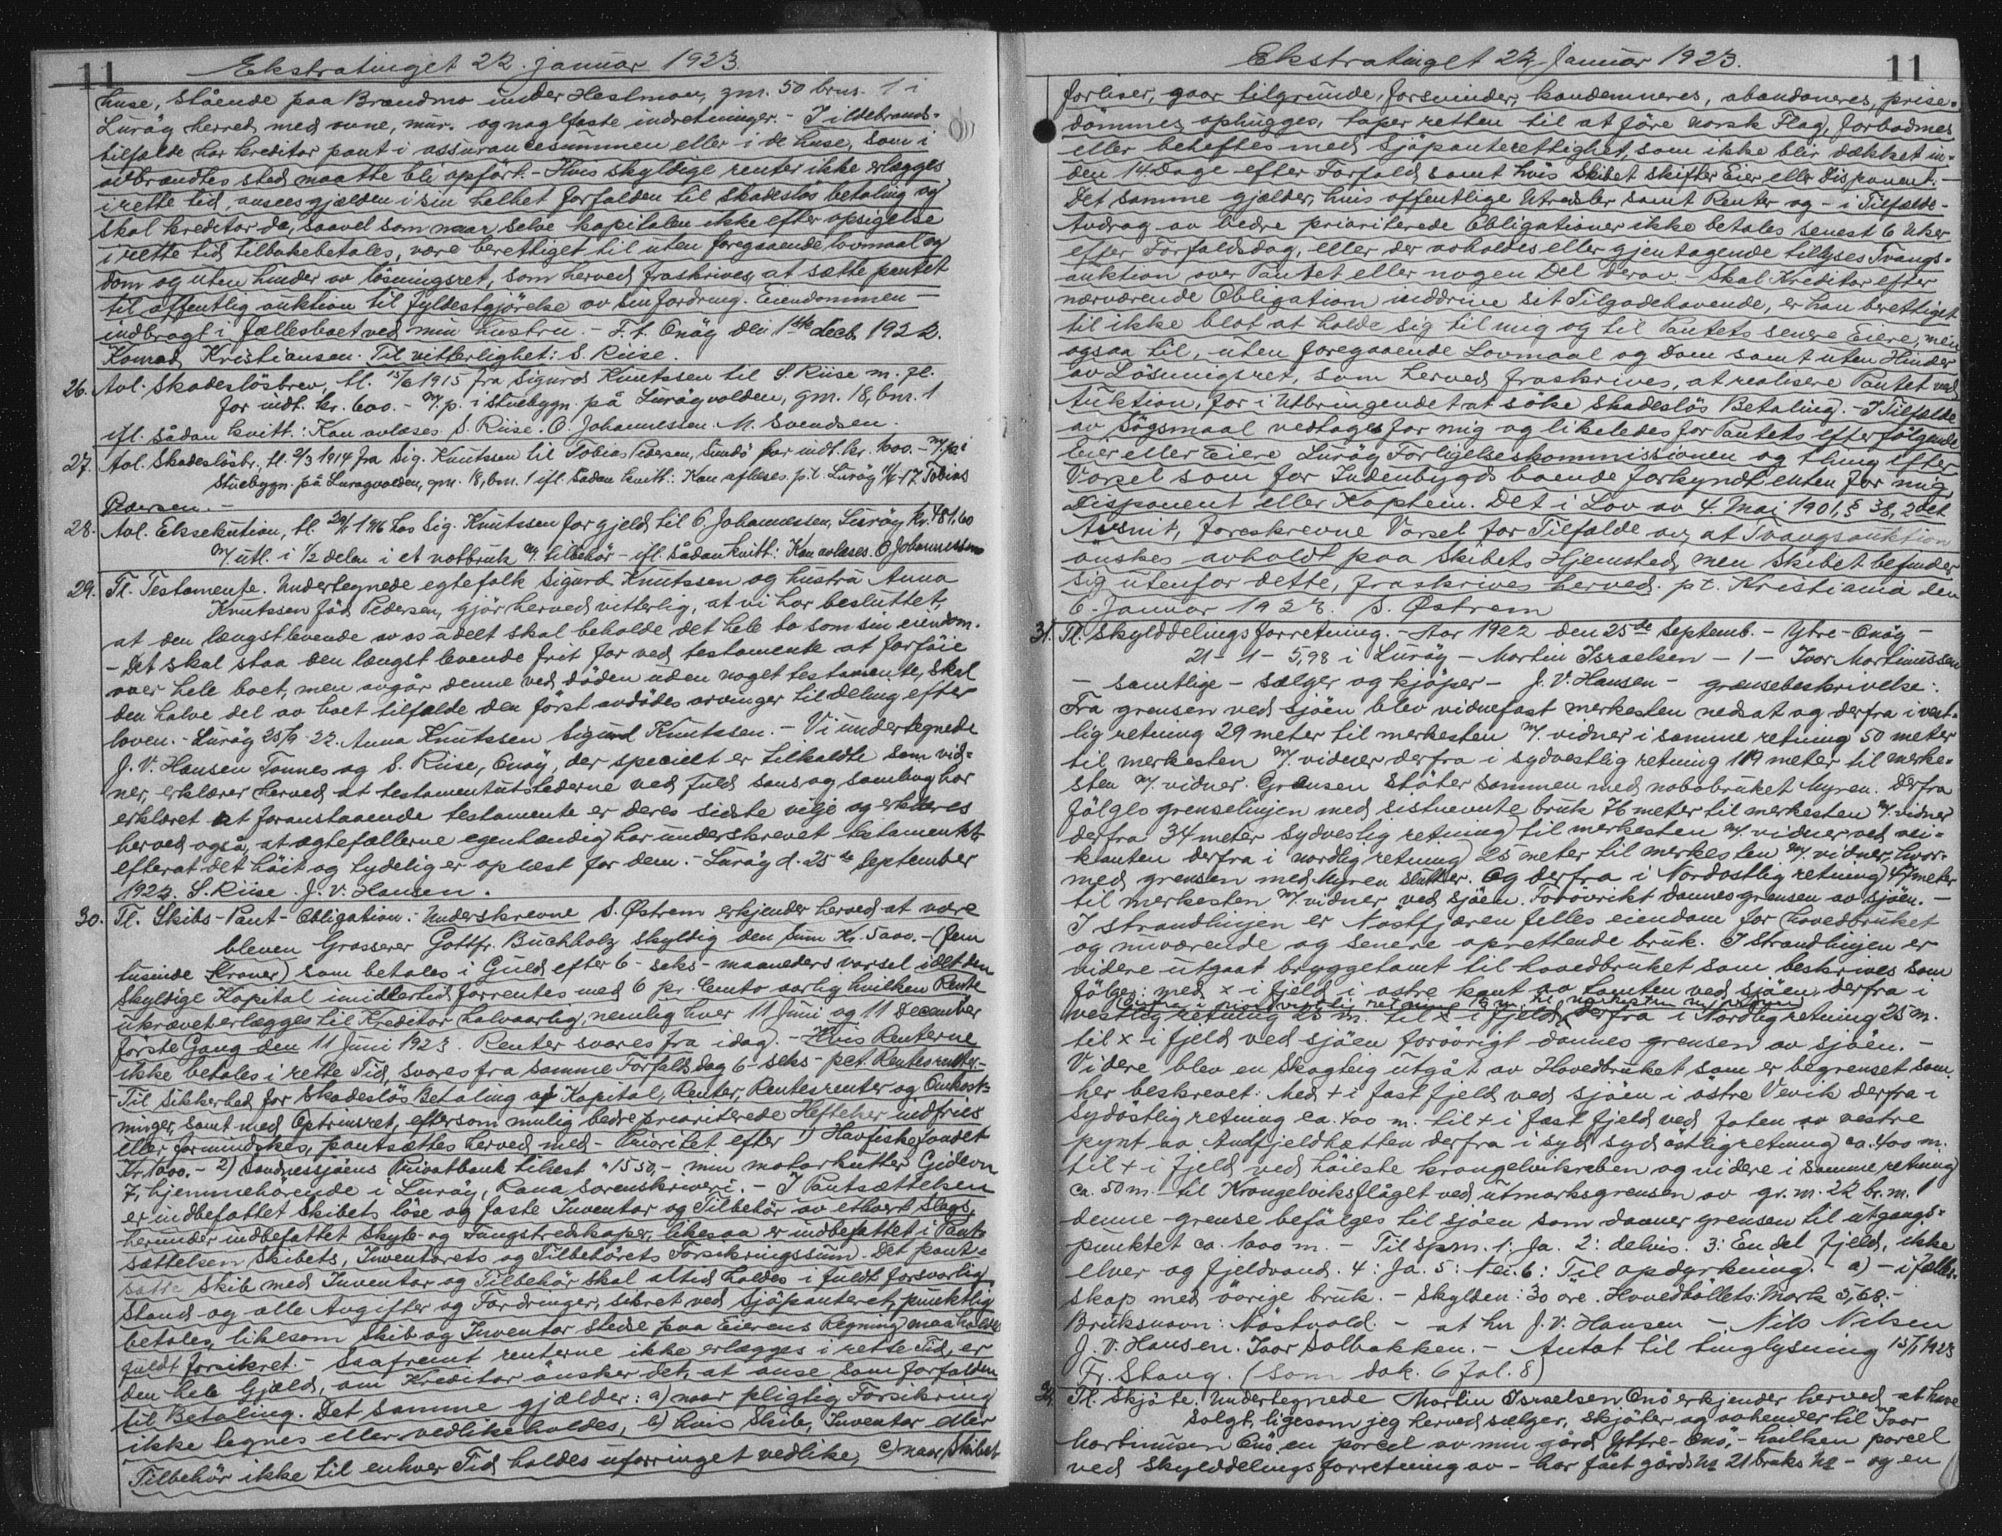 11
Ekstratinget 22. januar 1923.
huse, stående paa Brændmo under Hestmon, gm. 50 brn. 1 i
Lurøy herred med ovne, mur- og naglfaste indretninger. - I ildebrands-
tilfælde har kreditor pant i assurancesummen eller i de huse, som i
avbrændtes sted maatte bli opført. - Hvis skyldige renter ikke erlægges
i rette tid, ansees gjælden i sin helhet forfalden til skadesløs betaling og
skal kreditor da, saavel som naar selve kapitalen ikke efter opsigelse
i rette tid tilbakebetales, være berettiget til uten foregaaende lovmaal og
dom og uten hinder av løsningsret, som herved fraskrives, at sætte pantet
til offentlig auktion til fyldestgjørelse av sin fordring. Eiendommen -
indbragt i fællesboet ved min hustru. - F. t. Onøy den 1ste Decb. 1922.
Konrad Kristiansen. Til vitterlighet: S. Riise.
26. Avl. Skadesløsbrev, tl. 15/6 1915 fra Sigurd Knutssen til S. Riise m. fl.
for indt. kr. 600.- m/p. i stuebygn. på Lurøyvolden, gm. 18, bn. 1
ifl. sådan kvitt.: Kan avlæses S. Riise. O. Johannessen. M. Svendsen.
27. Avl. Skadesløsbr., tl. 2/3 1914 fra Sig. Knutsen til Tobias Pedersen, Sundø for indt. kr. 600.- m/p. i
Stuebygn. på Lurøyvolden, gm. 18, bn. 1 ifl. sådan kvitt.: Kan aflæses. p.t. Lurøy 11/6 17 Tobias
Pedersen. -
28. Avl. Eksekution, tl. 20/1 1916 hos Sig. Knutssen for gjeld til O. Johannessen, Lurøy kr. 481,60
m/ utl. i 1/2 delen i et notbruk m/ tilbehør - ifl. sådan kvitt: Kan avlæses. O Johannessen
29. Tl. Testamente. Undertegnede egtefolk Sigurd Knutssen og hustru Anna
Knutssen fød Pedersen, gjør herved vitterlig, at vi har besluttet,
at den længstlevende av os udelt skal beholde det hele bo som sin eiendom.
- Det skal staa den længstlevende frit for ved testamente at forføie
over hele boet, men avgår denne ved døden uden noget testamente, skal
den halve del av boet tilfalde den først avdødes arvinger til deling efter
loven. - Lurøy 25/9 - 22. Anna Knutssen Sigurd Knutssen. - Vi undertegnede
J. V. Hansen Tonnes og S. Riise, Onøy, der specielt er tilkaldte som vid-
ner, erklærer herved at testamentutstederne ved fuld sans og samling har
erklæret at foranstaaende testamente er deres sidste vilje og erklæres
herved også, at ægtefællerne egenhændig har underskrevet testamentet
efterat det høit og tydelig er oplæst for dem. - Lurøy d. 25de September
1922. S. Riise. J. V. Hansen.
30. Tl. Skibs-Pant-Obligation: Underskrevne S. Østrem erkjender herved at være
bleven Grosserer Gottfr. Buchholz skyldig den Sum Kr. 5000.- (Fem
tusinde Kroner) som betales i Guld efter 6- seks - maaneders varsel idet den
skyldige Kapital imidlertid forrentes med 6 pr. Cento aarlig hvilken Rente
ukrævet erlægges til Kreditor halvaarlig, nemlig hver 11 Juni og 11 December
første Gang den 11 Juni 1923. Renter svares fra idag. - Hvis Renterne
ikke betales i rette Tid, svares fra samme Forfaldsdag 6- seks - pct. Rentesrenter.-
Til Sikkerhed for Skadesløs Betaling af Kapital, Renter, Rentesrenter og Omkost-
ninger, samt med Optrinsret, eftersom mulig bedre prioriterede Heftelser indfries
eller formindskes, pantsættes herved med - Prioritet efter 1) Havfiskefondet
Kr. 1000.- 2) Sandnessjøens Privatbank tilbest " 1550.- min motorkutter Gideon
7, hjemmehørende i Lurøy, Rana sorenskriveri. - I Pantsættelsen
er indbefattet Skibets løse og faste Inventar og Tilbehør av ethvert Slags,
herunder indbefattet Skyte- og Fangstredskaper, likesaa er indbefattet i Pant-
sættelsen Skibets, Inventarets og Tilbehørets Forsikringssum. Det pant-
satte Skib med Inventar og Tilbehør skal altid holdes i fuldt forsvarlig
Stand og alle Avgifter og Fordringer, sikret ved Sjøpanteret, punktlig
betales, likesom Skib og Inventar stedse paa Eierens Regning maa holdes
fuldt forsikret. - Saafremt renterne ikke erlægges i rette Tid, er
den hele Gjæld, om Kreditor ønsker det, at anse som forfalden
til Betaling. Det samme gjælder: a) naar pligtig Forsikring
ikke tegnes eller vedlikeholdes, b) hvis Skib, Inventar eller
Tilbehør ikke til enhver Tid holdes uforringet vedlike, c) naar Skibet
Ekstratinget 22. Januar 1923.
11
forliser, gaar tilgrunde, forsvinder, kondemneres, abandoneres, prise-
dømmes, ophugges, taper retten til at føre norsk Flag, forbodmes
eller beheftes med Sjøpanterettighet, som ikke blir dækket in-
den 14 Dage efter Forfald samt hvis Skibet skifter Eier eller Disponent. -
Det samme gjælder, hvis offentlige Utredsler samt Renter og - i Tilfælde -
Avdrag av bedre prioriterede Obligationer ikke betales senest 6 Uker
efter Forfaldsdag, eller der avholdes eller gjentagende tillyses Tvangs-
auktion over Pantet eller nogen Del derav. - Skal Kreditor efter
nærværende Obligation inddrive sit Tilgodehavende, er han berettiget
til ikke blot at holde sig til mig og til Pantets senere Eiere, men
ogsaa til, uten foregaaende Lovmaal og Dom samt uten Hinder
av Løsningsret, som herved fraskrives, at realisere Pantet ved
Auktion, for i Utbringendet at søke skadesløs Betaling. - I Tilfælde
av Søgsmaal vedtages for mig og likeledes for Pantets efterfølgende
Eier eller Eiere Lurøy Forligelseskommissionen og thing efter
Varsel som for Indenbygds boende forkyndt enten for mig,
Disponent eller Kaptein. Det i Lov av 4. Mai 1901, § 38, 2det
Avsnit, foreskrevne Varsel for Tilfælde av, at Tvangsauktion
ønskes avholdt paa Skibets Hjemsted, men Skibet befinder
sig utenfor dette, fraskrives herved. p.t. Kristiania den
6. Januar 1923. S. Østrem
31. Tl. Skylddelingsforretning. - Aar 1922 den 25de Septemb. - Ytre-Onøy -
21 - 1 - 5,98 i Lurøy - Martin Israelsen - 1 - Ivar Martinussen
- samtlige - sælger og kjøper - J. V. Hansen - grænsebeskrivelse:
Fra grensen ved sjøen blev vidnefast merkesten nedsat og derfra i vest-
lig retning 29 meter til merkesten m/ vidner i samme retning 50 meter
til merkesten m/ vidner derfra i sydvestlig retning 119 meter til merke-
sten m/ vidner. Grænsen støter sammen med nabobruket Myren. Derfra
følges grenselinjen med sistnevnte bruk 76 meter til merkesten m/ vidner
derfra 34 meter sydvestlig retning til merkesten m/ vidner ved vei-
kanten derfra i nordlig retning 25 meter til merkesten m/ vidner, hvor-
med grensen med Myren slutter. Og derfra i Nordostlig retning 47 meter
til merkesten m/ vidner ved sjøen. Forøvrikt dannes grensen av sjøen. -
I strandlinjen er Nostfjæren felles eiendom for hovedbruket
og nuværende og senere oprettende bruk. I strandlinjen er
videre utgaat bryggetomt til hovedbruket som beskrives som
følger: med x i fjeld i østre kant av tomten ved sjøen derfra i
vestlig retning 25 m. til x i fjeld, derfra i Nordlig retning 25 m.
til x i fjeld ved sjøen forøvrigt dannes grensen av sjøen. -
Videre blev en Skogteig utgåt av Hovedbruket som er begrenset som
her beskrevet: Med + i fast fjeld ved sjøen i østre Vevik derfra i
sydøstlig retning ca. 400 m. til + i fast fjeld ved foten av vestre
pynt av Andfjeldhætten derfra i syd syd østlig retning ca. 400 m.
til + i fjeld ved høieste krangelvikreben og videre i samme retning
ca. 50 m. til Krangelviksflåget ved utmarksgrensen av gr. m. 22 br. m. 1
denne grense befølges til sjøen som danner grensen til utgangs-
punktet ca. 1000 m. Til spm. 1: Ja. 2: delvis. 3: En del fjeld, ikke
elver og fjeldvand. 4: Ja. 5: Nei. 6: Til opdyrkning. - a) - i felles-
skap med øvrige bruk. - Skylden: 30 øre. Hovedbøllets: Mark 5,68.-
Bruksnavn: Nøstvold. - at hr J. V. Hansen - Nils Nilsen
J. V. Hansen. Ivar Solbakken. - Antat til tinglysning 15/1 1923
Fr. Stang. (Som dok. 6 fol. 8)
32. Tl. Skjøte. Undertegnede Martin Israelsen Onø erkjender herved at have
solgt, ligesom jeg herved sælger, skjøter og avhender til Ivar
Martinusen Onø, en parcel av min gård Yttre-Onø, - hvilken parcel
ved Skylddelingsforretning av - har fåt gårds № 21 bruks № - og en